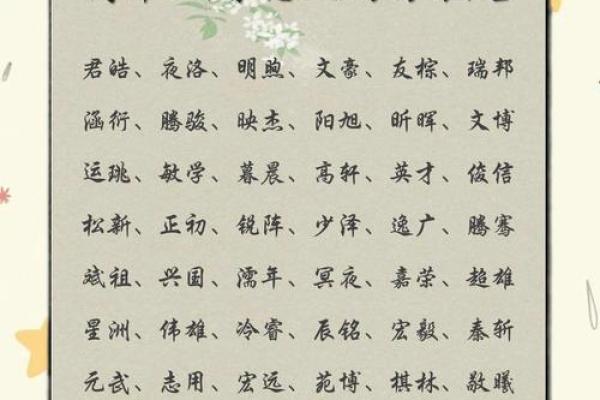 君皓、夜洛、明煦、文豪、友棕、瑞邦
涵衍、腾骏、映杰、阳旭、昕晖、文博
运珧、敏学、暮晨、高轩、英才、俊信
松新、正初、锐阵、少泽、逸广、腾骞
斌祖、兴国、濡年、冥夜、嘉荣、超雄
星洲、伟雄、冷睿、辰铭、宏毅、秦斩
元武、志用、宏远、苑博、棋林、敬曦